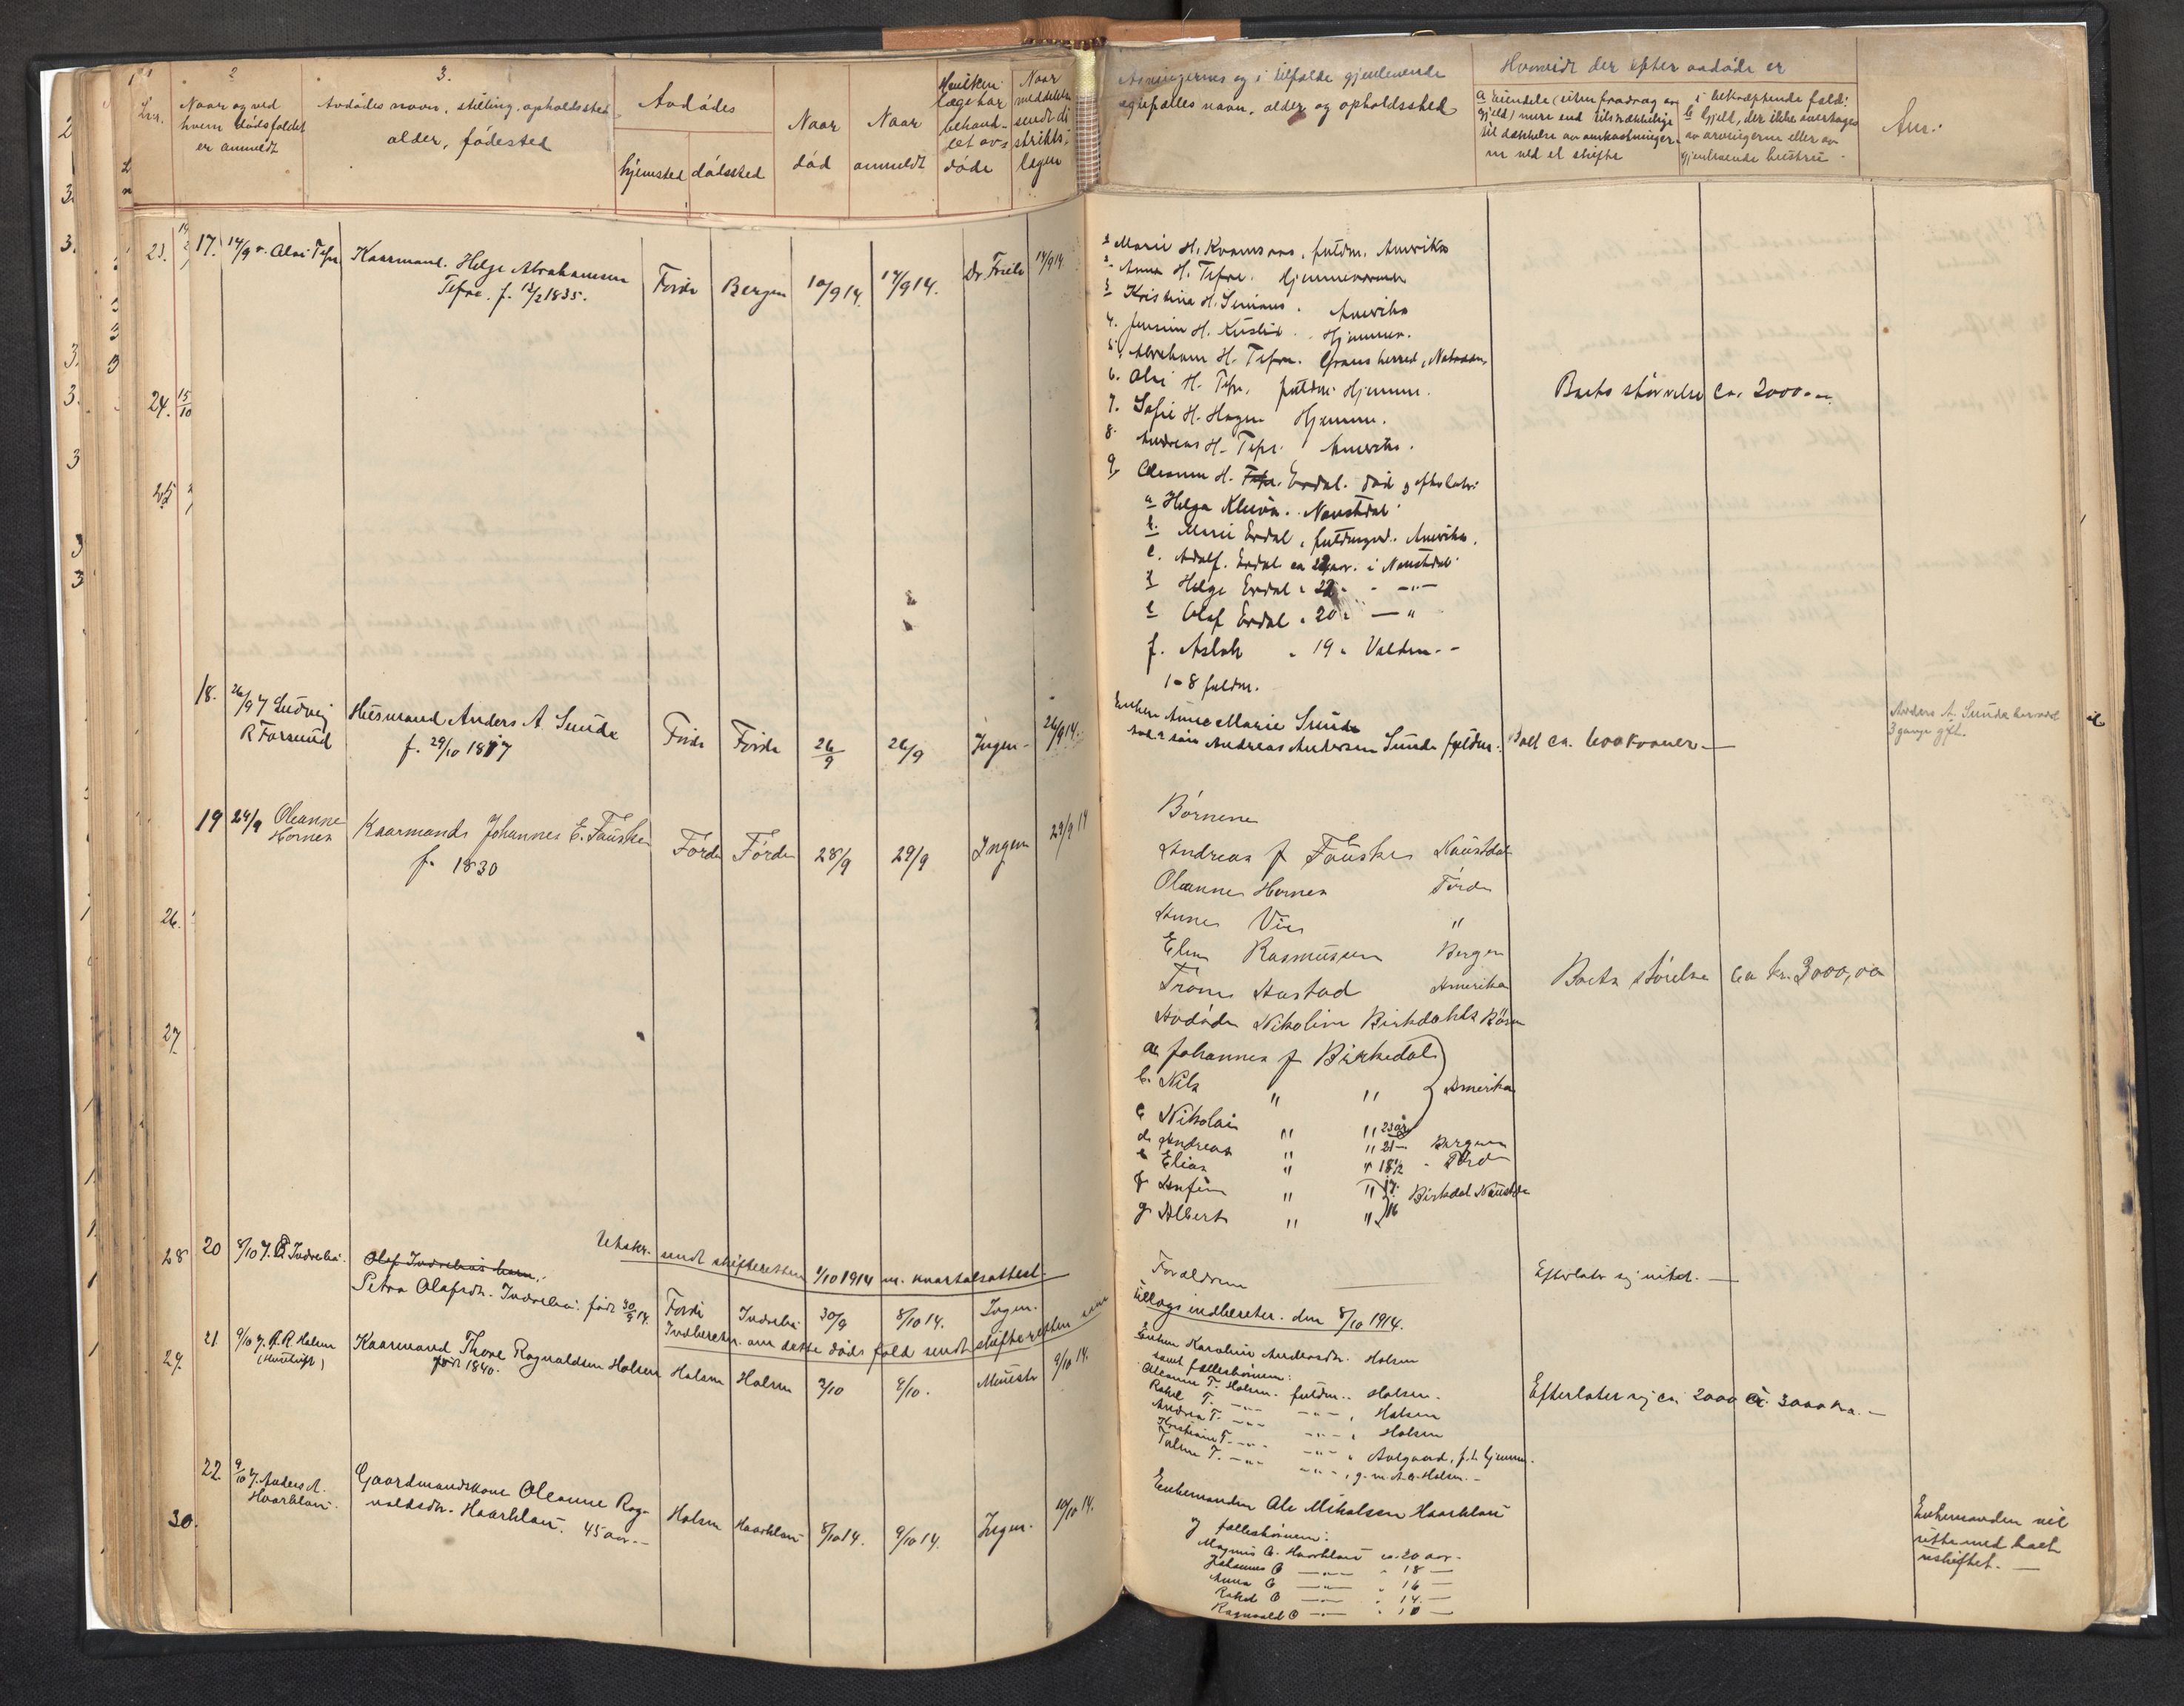 1
2
3.
Naar og ved
hvem dødsfaldet
er anmeldt
Avdødes navn, stilling, opholdssted
alder, fødested
Avdødes
hjemsted dødssted
Naar
død
Naar
anmeldt
Hvilken
læge har
behand-
let avs
døde
Naar
meddelelse
sendt di
strikts-
lægen
Arvingernes og i tilfælde gjenlevende
egtefælles navn, alder og opholdssted
Hvorvidt der efter avdøde er
a eiendele (uten fradrag av
gjeld) mere end tilstrækkelige
til dækkelse av omkostninger-
ne ved et skifte
i bekræftende fald:
b Gjeld, der ikke overtages
av arvingerne eller av
gjenlevende hustru.
Anm.
23.
17. 14/9 v. Olai Tefre
Kaarmand. Helge Abrahamsen
Tefre. f. 13/2 1835.
Førde Bergen 10/9 14. 14/9 14. Dr. Friele 14/9 14
1 Marie H. Kvamsaas, fuldm. Amerika
2 Anna H. Tefre. Hjemmeværende
3 Kristina H. Simians. Amerika
4. Jensine H. Hjemmev.
5. Abraham H. Tefre. Grans herred,
6. Olai H. Tefre, fuldm. Hjemme.
7. Sofie H. Hagen Hjemme.
8. Andreas H. Tefre. Amerika.
9. Oleanna H. Tefre. Erdal. død, efterlater:
a Helga Kleiva. Naustdal
b. Marie Erdal, fuldmynd. Amerika.
c. Adolf. Erdal ca 24 aar. i Naustdal
d Helge Erdal " 22 " - " -
e Olaf Erdal " 20 " — "
f. Aslak " 19 " Valden. -
1-8 fuldm.
24. 15/10
Boets størrelse ca. 2000.-
25
18. 26/9 v Ludvig
R Førsund
Husmand Anders A Sunde
f. 29/10 1817
Førde Førde 26/9 26/9 Ingen - 26/9 14.
Enken Anne Marie Sunde
samt søn Andreas Andersen Sunde fuldm.
Boet ca. 600 kroner —
Anders A. Sunde har været
3 gange gift.
19 29/9 Oleanne
Hornes
Kaarmands Johannes E. Fauske
f. 1830
Førde Førde 28/9 29/9 Ingen 29/9 14
Børnene
Andreas J Fauske Naustdal
Oleanne Hornes Førde
Anne Vie "
Elen Rasmussen Bergen
Trone Hastad Amerika
Avdøde Nikoline Birkdahls Børn
a Johannes J Birkedal
b. Nils " " Amerika
c Nikolai " " 23 år
d. Andreas " " 21 — Bergen
e Elias " " 18 1/2 - Førde
f Anfin " " 17.
g Albert " " 16 Birkdal Naustdal
Boets størelse ca kr. 3000,00
26.
27
28
Utskr. sendt skifteretten 1/10 1914 m. kvartalsattest.
20 8/10 v. Indrebø.
Olaf Indrebøs barn.
Petra Olafsdr. Indrebø. født 30/9 14.
Førde Indrebø 30/9 8/10 14. Ingen.
Forældrene
Efterlater sig intet. —
Indberetn. om dette dødsfald sendt skifteretten som
tillægsindberetn. den 8/10 1914.
29.
21. 9/10 v. R. Holsen
(Husstift)
Kaarmand Thore Ragnvaldsen Holsen
født 1840.
Holsen Holsen 2/10 9/10. Münster 9/10 14.
Enken Karoline Andersdr. Holsen
samt fællesbørnene:
Oleanne T. Holsen. fuldm.. Holsen.
Rakel T. —"— —"—, Holsen
Andrea T. —"— —"—, Holsen
Kristiane T. —"— —"—, Aalgaard, f. t. hjemme.
Talene T. —"— —"—, g. m. A. A. Holsen. -
Efterlater sig ca. 2000 à 3000 kr. —
30.
22. 9/10 v. Anders A.
Haarklau.
Gaardmandskone Oleanne Rag-
naldsdr. Haarklau. 45 aar. —
Holsen Haarklau 8/10 14. 9/10 14. Ingen. 10/10 14.
Enkemanden Ole Mikalsen Haarklau
og fællesbørnene:
Magnus O. Haarklau ca. 20 aar -
Johannes O —"— " 18 —
Anna O —"— " 16 —
Rakel O —"— " 14. —
Ragnvald O —"— " 10 —
Enkemanden vil
sitte med boet
uskiftet. —